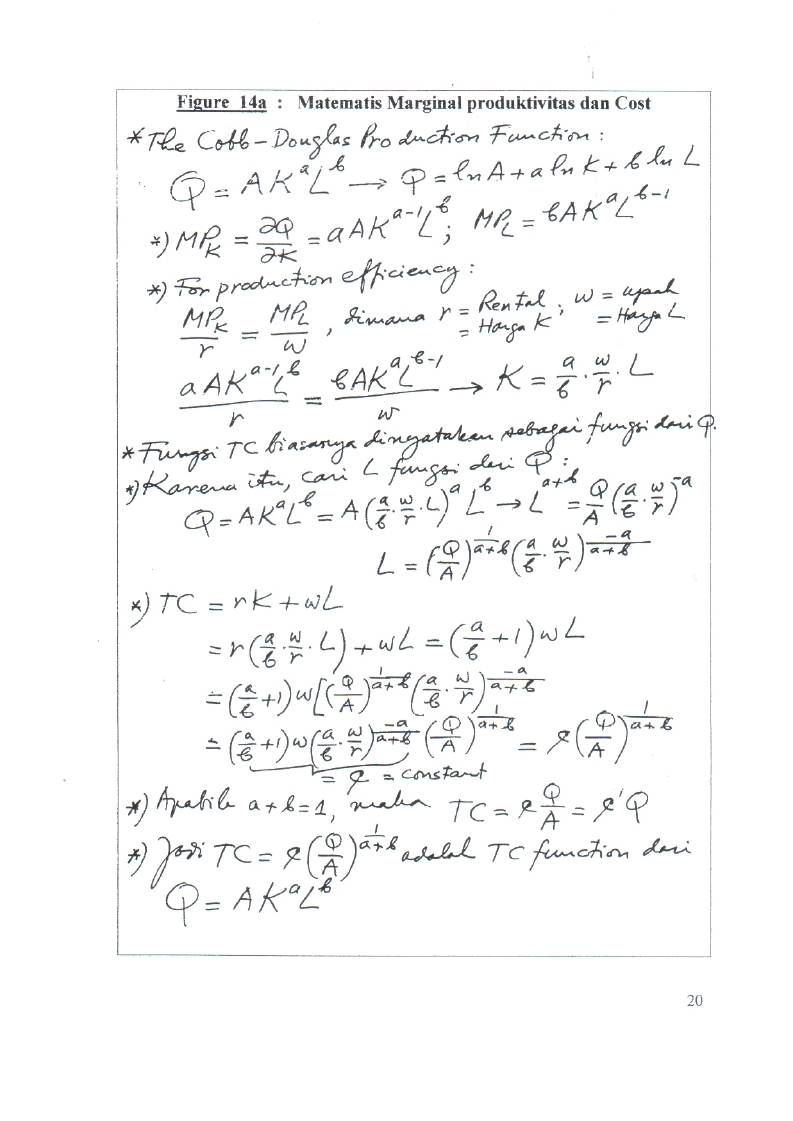 Figure 14a : Matematis Marginal produktivitas dan Cost
* The Cobb-Douglas Production Function :
Q = AK^a L^b → Q = ln A + a ln K + b ln L
*) MP_K = ∂Q/∂K = aAK^(a-1) L^b ; MP_L = bAK^a L^(b-1)
*) For production efficiency :
MP_K/r = MP_L/w , dimana r = Rental ; w = upah
= Harga K = Harga L
aAK^(a-1) L^b / r = bAK^a L^(b-1) / w → K = a/b · w/r · L
* Fungsi TC biasanya dinyatakan sebagai fungsi dari Q.
*) Karena itu, cari L fungsi dari Q :
Q = AK^a L^b = A(a/b · w/r · L)^a L^b → L^(a+b) = Q/A (a/b · w/r)^(-a)
L = (Q/A)^(1/(a+b)) (a/b · w/r)^(-a/(a+b))
*) TC = rK + wL
= r(a/b · w/r · L) + wL = (a/b + 1) wL
= (a/b + 1) w [(Q/A)^(1/(a+b)) (a/b · w/r)^(-a/(a+b))
= (a/b + 1) w (a/b · w/r)^(-a/(a+b)) (Q/A)^(1/(a+b)) = (Q/A)^(1/(a+b))
= = constant
*) Apabila a + b = 1, maka TC = Q/A = Q
*) Jadi TC = (Q/A)^(1/(a+b)) adalah TC function dari
Q = AK^a L^b
20